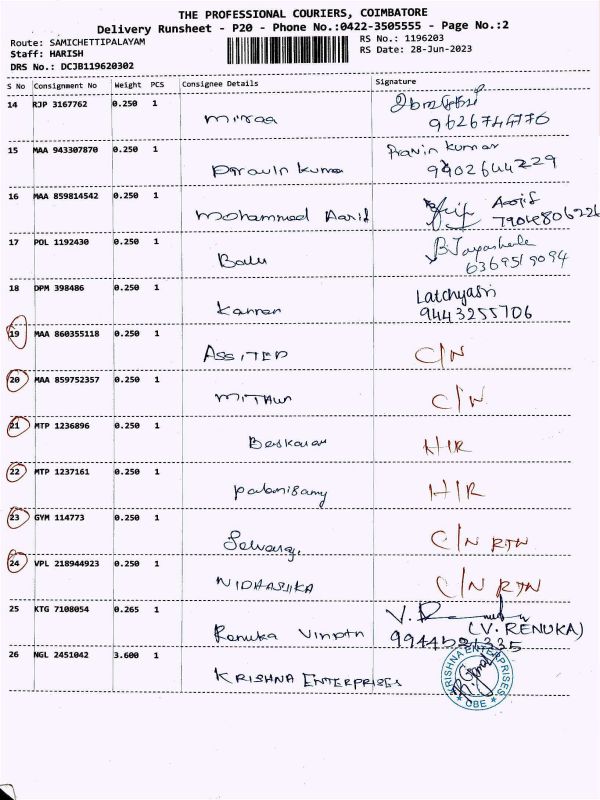 THE PROFESSIONAL COURIERS, COIMBATORE
Delivery Runsheet - P20 - Phone No.:0422-3505555 - Page No.:2
Route: SAMICHETTIPALAYAM
RS No.: 1196203
Staff: HARISH
RS Date: 28-Jun-2023
DRS No.: DCJB119620302
S No Consignment No Weight PCS Consignee Details Signature
14 RJP 3167762 0.250 1
9626744776
15 MAA 943307870 0.250 1 Pravin Kumar
Pravin Kumar
16 MAA 859814542 0.250 1 Mohammed Aarif
7904806226
17 POL 1192430 0.250 1 Balu
6369519094
18 DPM 398486 0.250 1 Latchyasri
Kannan 9443255706
19 MAA 860355118 0.250 1
C/N
20 MAA 859752357 0.250 1
C/N
21 MTP 1236896 0.250 1
Baskaran H/R
22 MTP 1237161 0.250 1
Palanisamy H/R
23 GYM 114773 0.250 1
Selvaraj C/N RTN
24 VPL 218944923 0.250 1
C/N RTN
25 KTG 7108054 0.265 1
(V. RENUKA)
Renuka
26 NGL 2451042 3.600 1
KRISHNA ENTERPRISES
KRISHNA ENTERPRISES
CBE